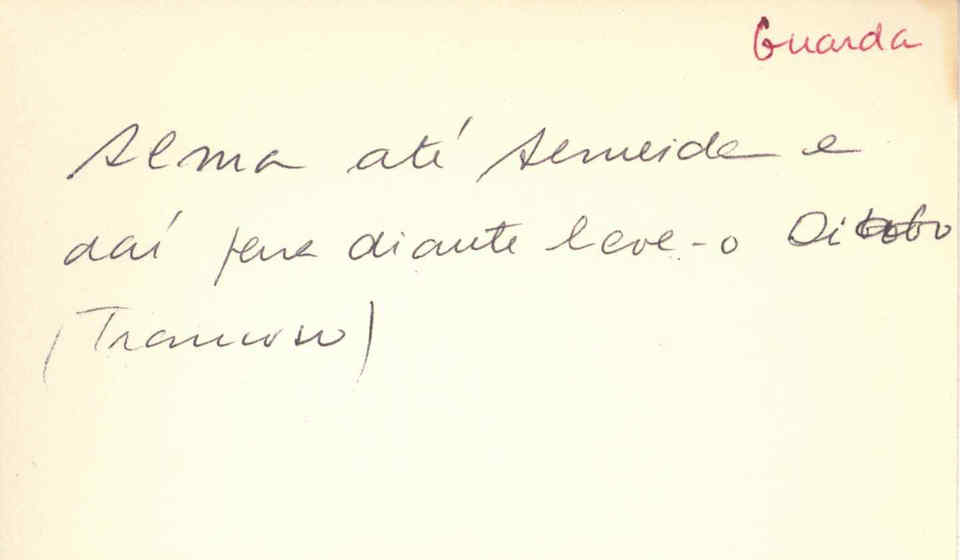 Guarda
Alma até Almeida e
daí para diante leve-o Diabo
(Trancoso)